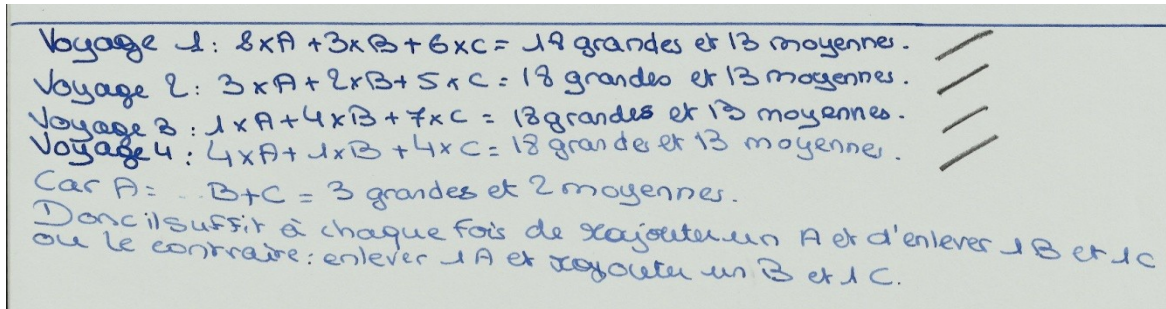 Voyage 1: 2×A + 3×B + 6×C = 18 grandes et 13 moyennes.
Voyage 2: 3×A + 2×B + 5×C = 18 grandes et 13 moyennes.
Voyage 3: 1×A + 4×B + 7×C = 18 grandes et 13 moyennes.
Voyage 4: 4×A + 1×B + 4×C = 18 grandes et 13 moyennes.
Car A = .. B+C = 3 grandes et 2 moyennes.
Donc il suffit à chaque fois de rajouter un A et d'enlever 1B et 1C
ou le contraire : enlever 1A et rajouter un B et 1C.